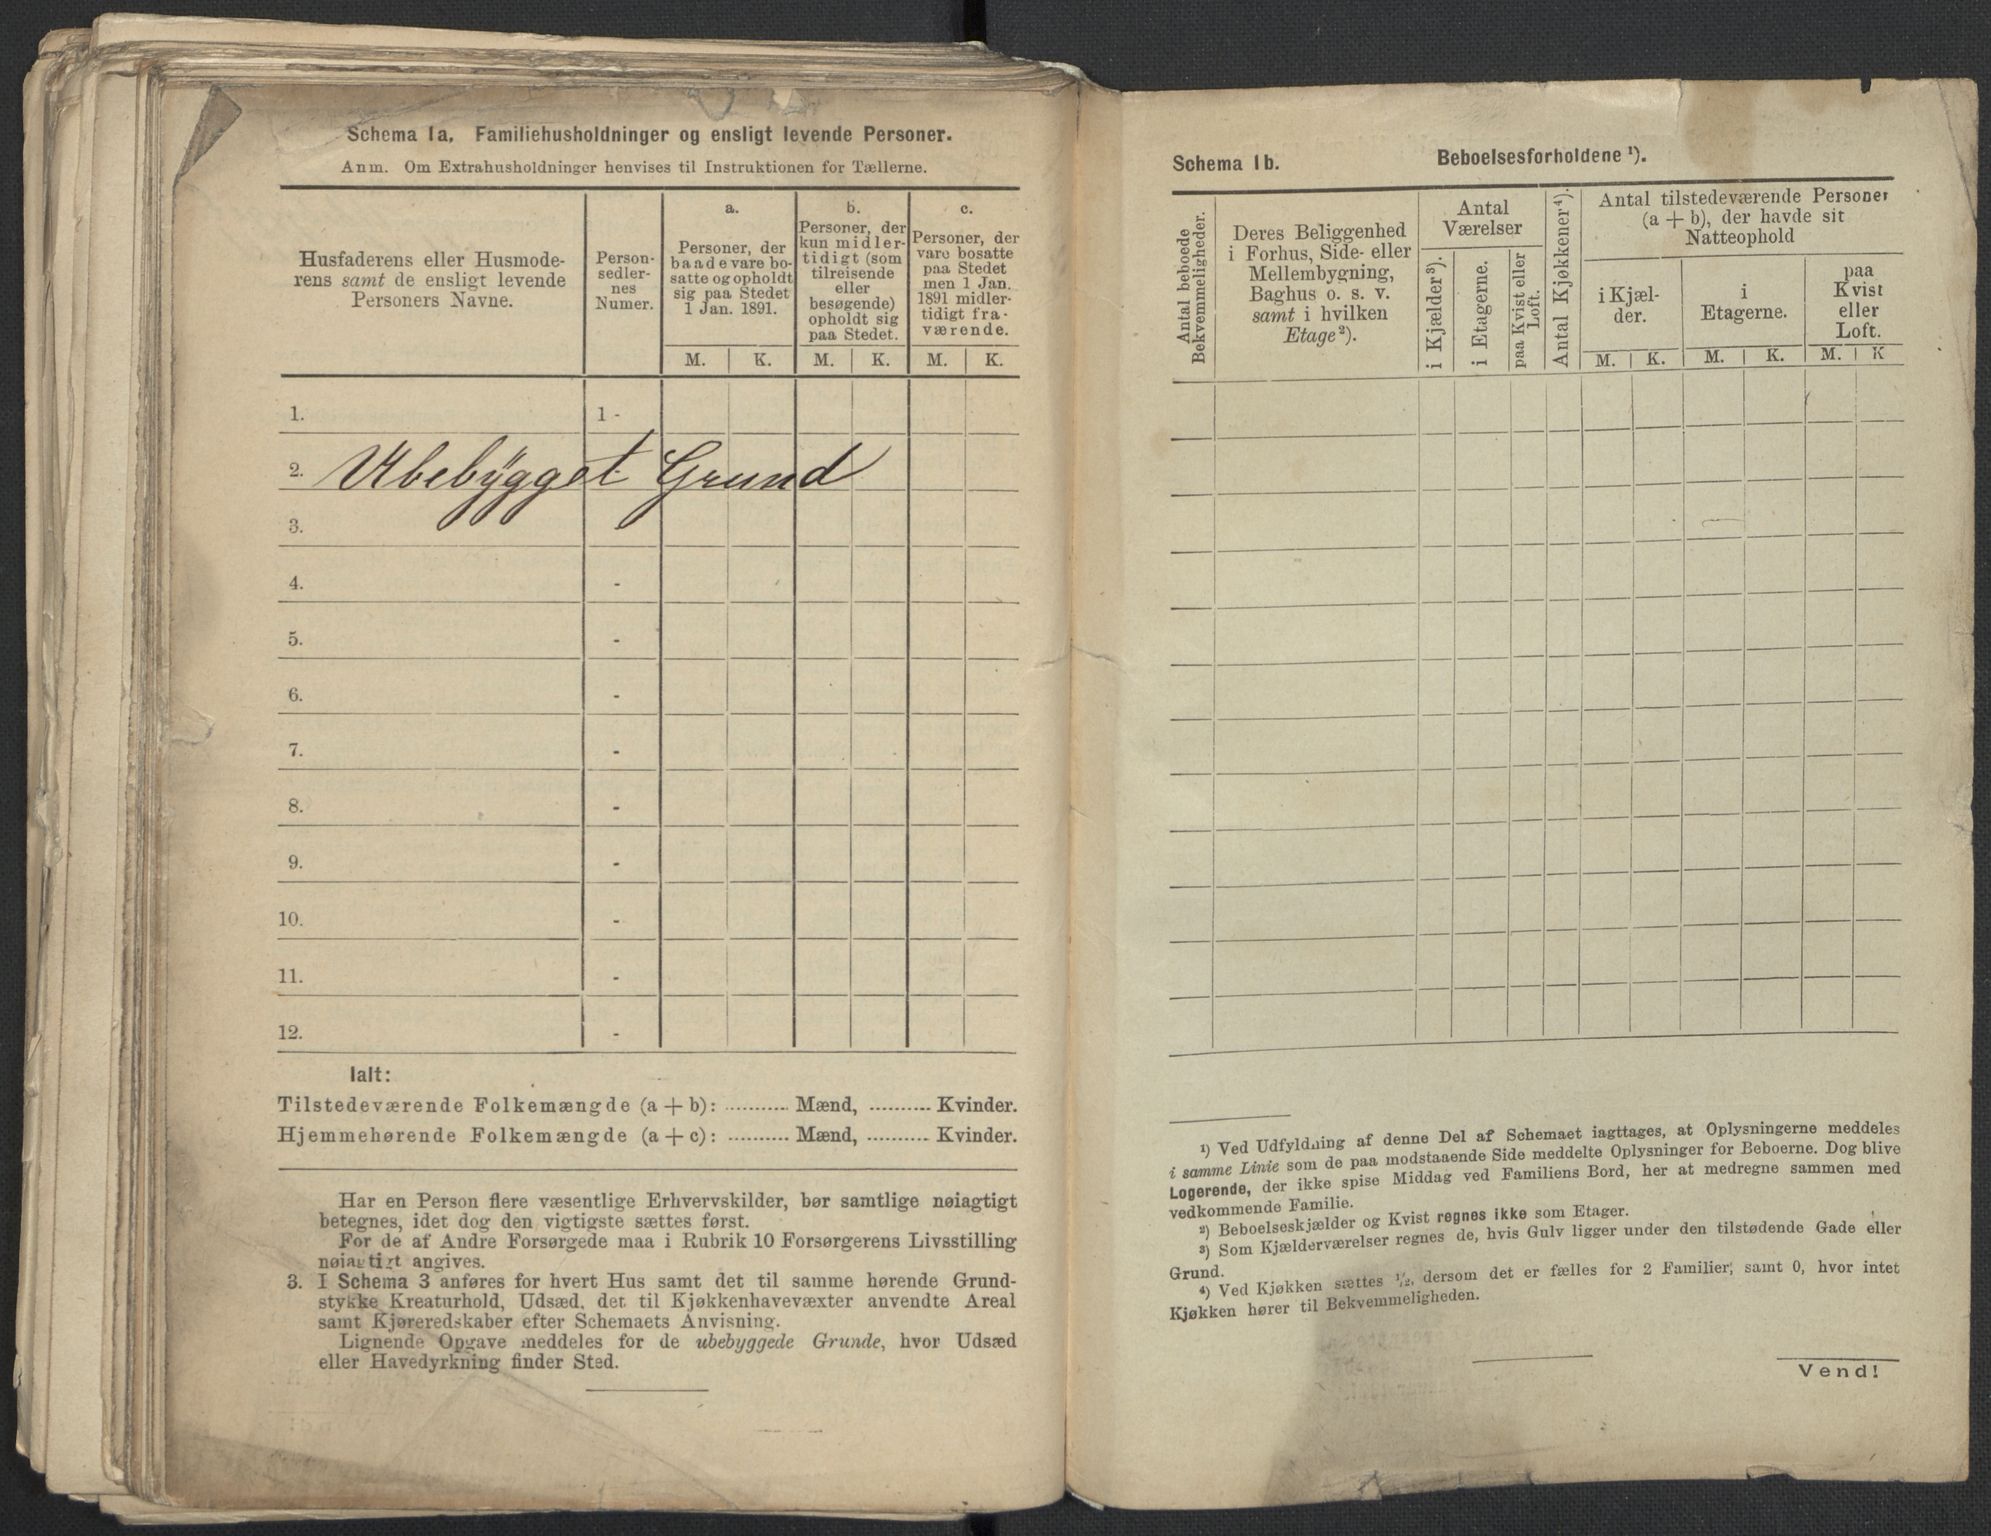 Schema 1a. Familiehusholdninger og ensligt levende Personer.
Anm. Om Extrahusholdninger henvises til Instruktionen for Tællerne.
Husfaderens eller Husmode-
rens samt de ensligt levende
Personers Navne.
Person-
sedler-
nes
Numer.
a.
Personer, der
baade vare bo-
satte og opholdt
sig paa Stedet
1 Jan. 1891.
b.
Personer, der
kun midler-
tidigt (som
tilreisende
eller
besøgende)
opholdt sig
paa Stedet.
c.
Personer, der
vare bosatte
paa Stedet
men 1 Jan.
1891 midler-
tidigt fra-
værende.
M. K. M. K. M. K.
1. 1 -
2. Ubebygget Grund
3. -
4. -
5. -
6. -
7. -
8. -
9. -
10. -
11. -
12. -
Ialt:
Tilstedeværende Folkemængde (a + b): .......... Mænd, .......... Kvinder.
Hjemmehørende Folkemængde (a + c): .......... Mænd, .......... Kvinder.
Har en Person flere væsentlige Erhvervskilder, bør samtlige nøiagtigt
betegnes, idet dog den vigtigste sættes først.
For de af Andre Forsørgede maa i Rubrik 10 Forsørgerens Livsstilling
nøiagtigt angives.
3. I Schema 3 anføres for hvert Hus samt det til samme hørende Grund-
stykke Kreaturhold, Udsæd, det til Kjøkkenhavevæxter anvendte Areal
samt Kjøreredskaber efter Schemaets Anvisning.
Lignende Opgave meddeles for de ubebyggede Grunde, hvor Udsæd
eller Havedyrkning finder Sted.
Schema 1b. Beboelsesforholdene ¹).
Antal beboede
Bekvemmeligheder.
Deres Beliggenhed
i Forhus, Side- eller
Mellembygning,
Baghus o. s. v.
samt i hvilken
Etage²).
Antal
Værelser
i Kjælder³).
i Etagerne.
paa Kvist eller
Loft.
Antal Kjøkkener⁴).
Antal tilstedeværende Personer
(a + b), der havde sit
Natteophold
i Kjæl-
der.
i
Etagerne.
paa
Kvist
eller
Loft.
M. K. M. K. M. K
¹) Ved Udfyldning af denne Del af Schemaet iagttages, at Oplysningerne meddeles
i samme Linie som de paa modstaaende Side meddelte Oplysninger for Beboerne. Dog blive
Logerende, der ikke spise Middag ved Familiens Bord, her at medregne sammen med
vedkommende Familie.
²) Beboelseskjælder og Kvist regnes ikke som Etager.
³) Som Kjælderværelser regnes de, hvis Gulv ligger under den tilstødende Gade eller
Grund.
⁴) Ved Kjøkken sættes ½, dersom det er fælles for 2 Familier, samt 0, hvor intet
Kjøkken hører til Bekvemmeligheden.
Vend!